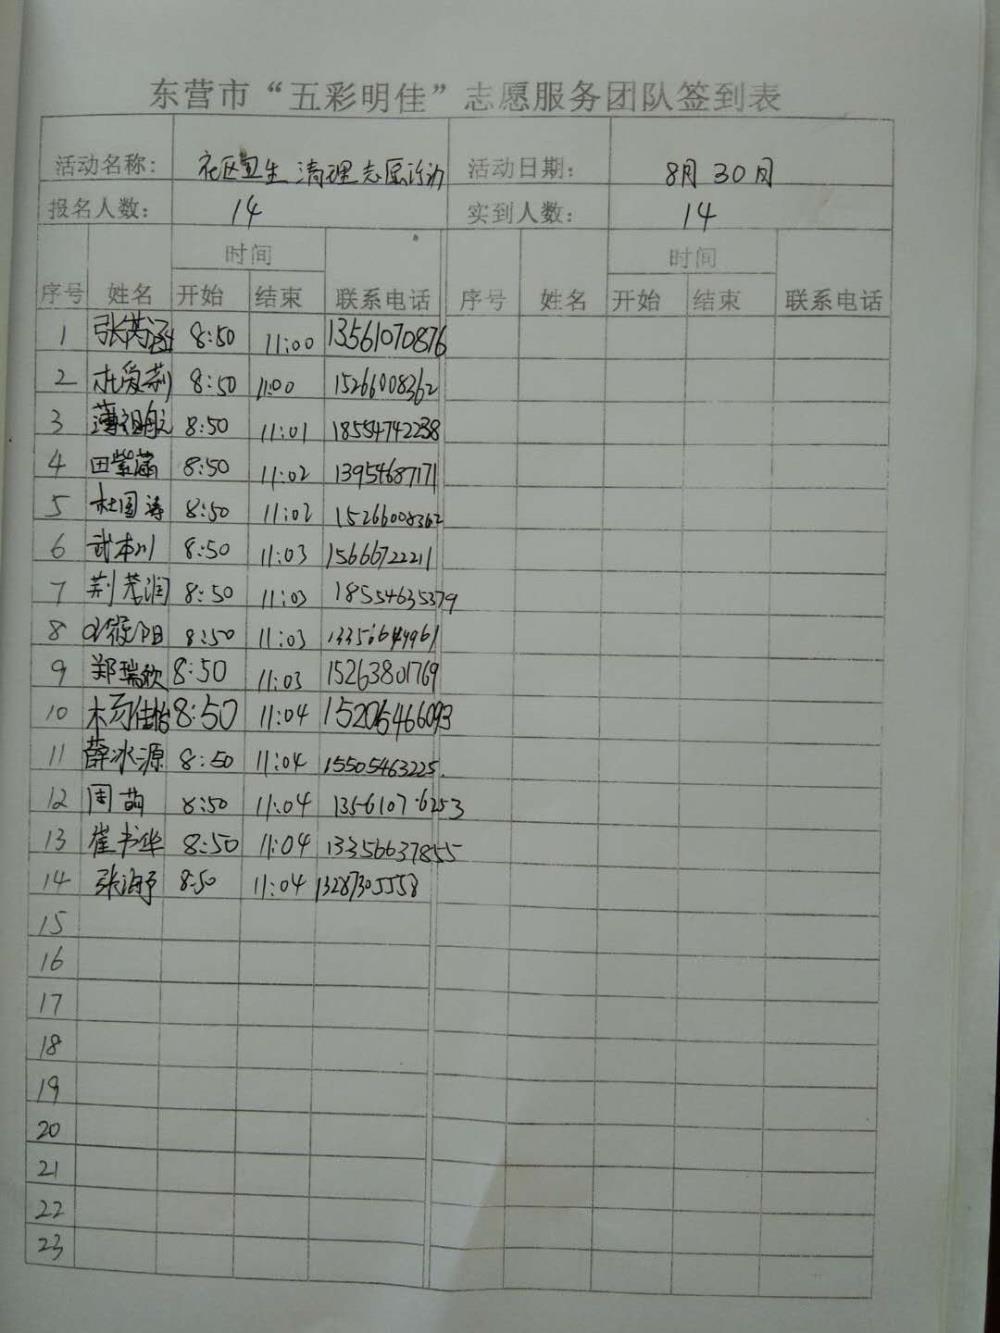 东营市“五彩明佳”志愿服务团队签到表
活动名称: 社区卫生清理志愿活动 活动日期: 8月30日
报名人数: 14 实到人数: 14
时间 时间
序号 姓名 开始 结束 联系电话 序号 姓名 开始 结束 联系电话
1 张芮涵 8:50 11:00 13561070876
2 杜爱荆 8:50 11:00 15266008362
3 薄祖航 8:50 11:01 18554742238
4 田紫菡 8:50 11:02 13954687171
5 杜国涛 8:50 11:02 15266008362
6 武本川 8:50 11:03 15666722211
7 荆茗润 8:50 11:03 18554635379
8 8:50 11:03 13356649961
9 郑瑞欣 8:50 11:03 15263801769
10 8:50 11:04 15206466093
11 薛冰源 8:50 11:04 15505463225
12 周萌 8:50 11:04 13561076253
13 崔书华 8:50 11:04 13356637855
14 8:50 11:04 13287305558
15
16
17
18
19
20
21
22
23